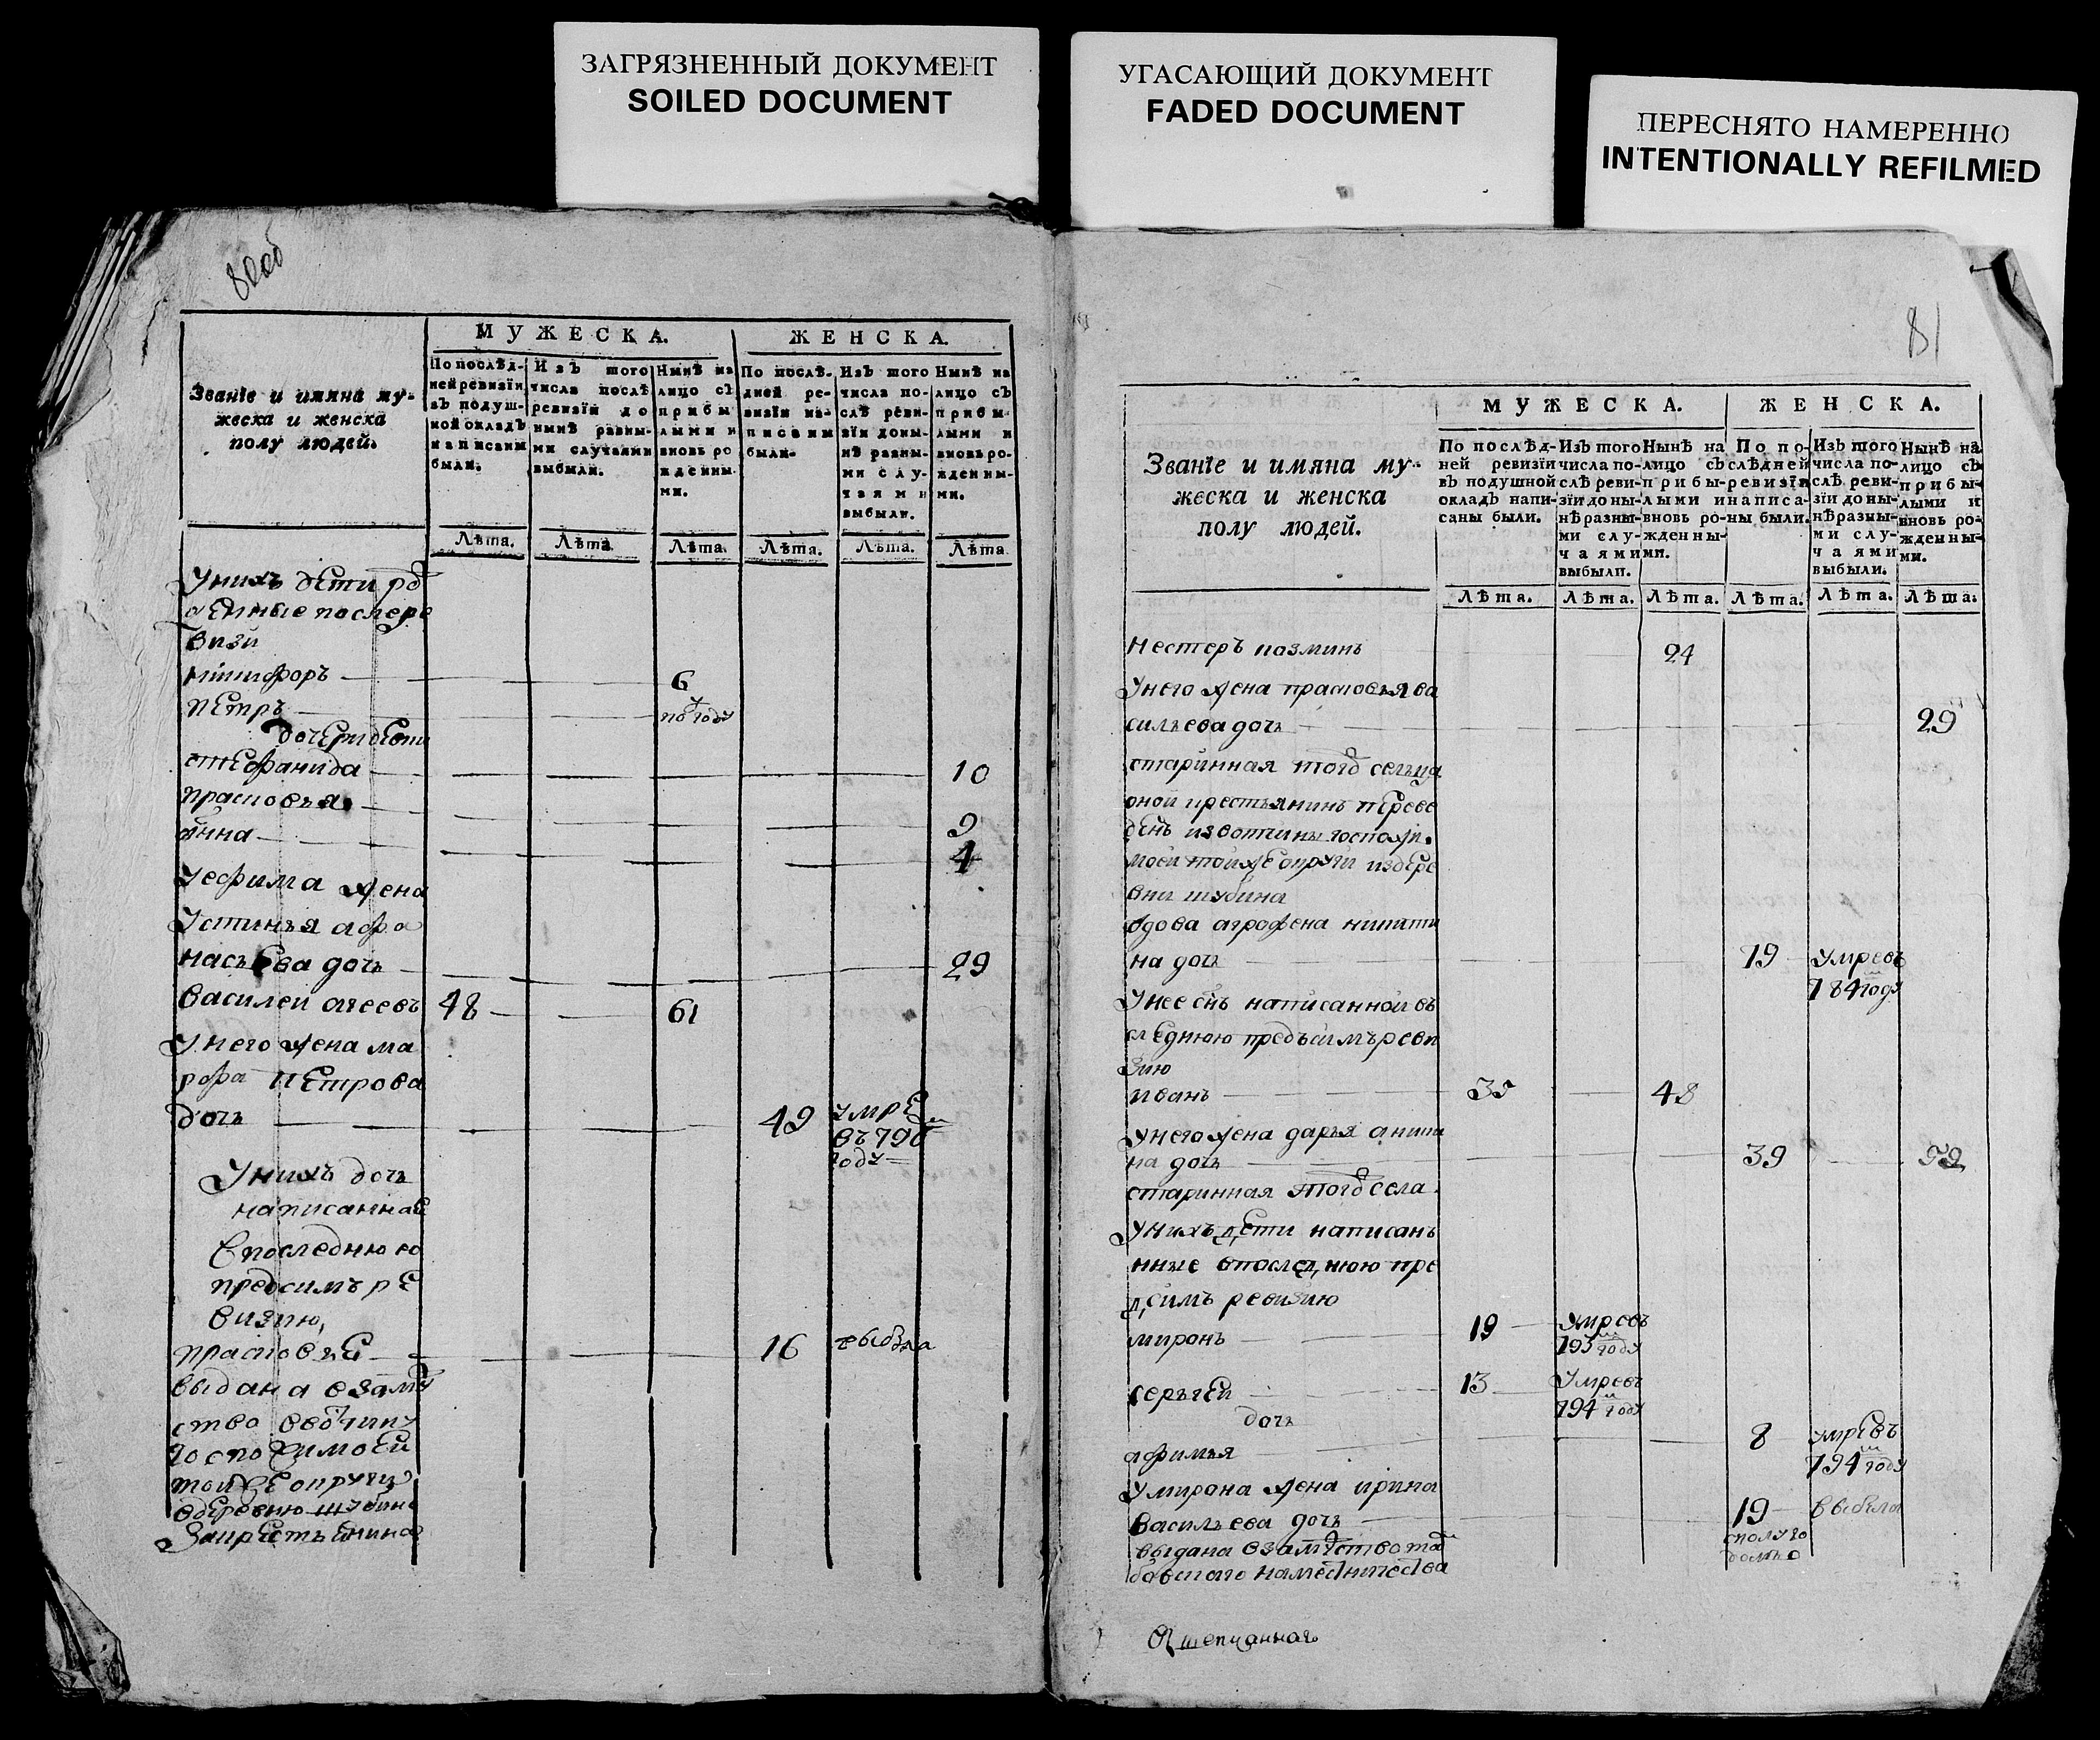 ЗАГРЯЗНЕННЫЙ ДОКУМЕНТ
SOILED DOCUMENT
УГАСАЮЩИЙ ДОКУМЕНТ
FADED DOCUMENT
ПЕРЕСНЯТО НАМЕРЕННО
INTENTIONALLY REFILMED
80об
МУЖЕСКА.
ЖЕНСКА.
Званїе и имяна му-
жеска и женска
полу людей.
По послѣд-
ней ревизїи
въ подуш-
ной окладъ
написаны
были.
Изъ того
числа послѣ
ревизїи до
нынѣ разны-
ми случаями
выбыли.
Нынѣ на
лицо съ
прибы
лыми и
вновь ро
жденны-
ми.
По послѣ-
дней ре-
визїи на-
писаны
были.
Изъ того
числа по-
слѣ реви-
зїи доны-
нѣ разны-
ми слу-
чаями
выбыли.
Нынѣ на
лицо съ
прибы-
лыми и
вновь ро-
жденны-
ми.
Лѣта. Лѣта. Лѣта. Лѣта. Лѣта. Лѣта.
Унихъ дети ро
денные послере
визи
никифоръ 6
петръ по году
дочери дети
стефанида 10
прасковья 9
анна 4
Уефима жена
Устинья афа
насьева дочь 29
василеи агеевъ 48 61
Унего жена ма
рфа петрова
дочь 49 умре
въ 790м
году
Унихъ дочь
написанная
впоследнюю
предсимъ ре
визию,
прасковье 16 выбыла
выдана взаму
ство вовотчину
госпожи моей
тойже округи
вдеревню шубину
закрестьянина
81
МУЖЕСКА.
ЖЕНСКА.
Званїе и имяна му-
жеска и женска
полу людей.
По послѣд-
ней ревизїи
въ подушной
окладъ напи-
саны были.
Изъ того
числа по-
слѣ реви-
зїи доны-
нѣ разны-
ми слу-
чаями
выбыли.
Нынѣ на
лицо съ
прибы-
лыми и
вновь ро-
жденны-
ми.
По по-
слѣдней
ревизїи
написа-
ны были.
Изъ того
числа по-
слѣ реви-
зїи доны-
нѣ разны-
ми слу-
чаями
выбыли.
Нынѣ на
лицо съ
прибы-
лыми и
вновь ро-
жденны-
ми.
Лѣта. Лѣта. Лѣта. Лѣта. Лѣта. Лѣта.
Нестеръ козминъ 24
Унего жена прасковья ва
сильева дочь 29
старинная того сельца
оной крестьянинъ переве
денъ извотчины госпожи
моей тойже округи издере
вни шубина
вдова агрофена никити
на дочь 19 умре въ
784м году
Унее сынъ написанной въ
следнюю предъсимъ реви
зию
иванъ 35 48
Унего жена дарья аники
на дочь 39 52
старинная этого села
Унихъ дети написанъ
нные впоследнюю пре
дсимъ ревизию
миронъ 19 умре въ
793м году
сергей 13 Умре въ
794м году
дочь
афимья 8 умре въ
794м году
Умирона жена ирина
Васильева дочь 19 выбыла
выдана взамуство та
бовскаго наместничества